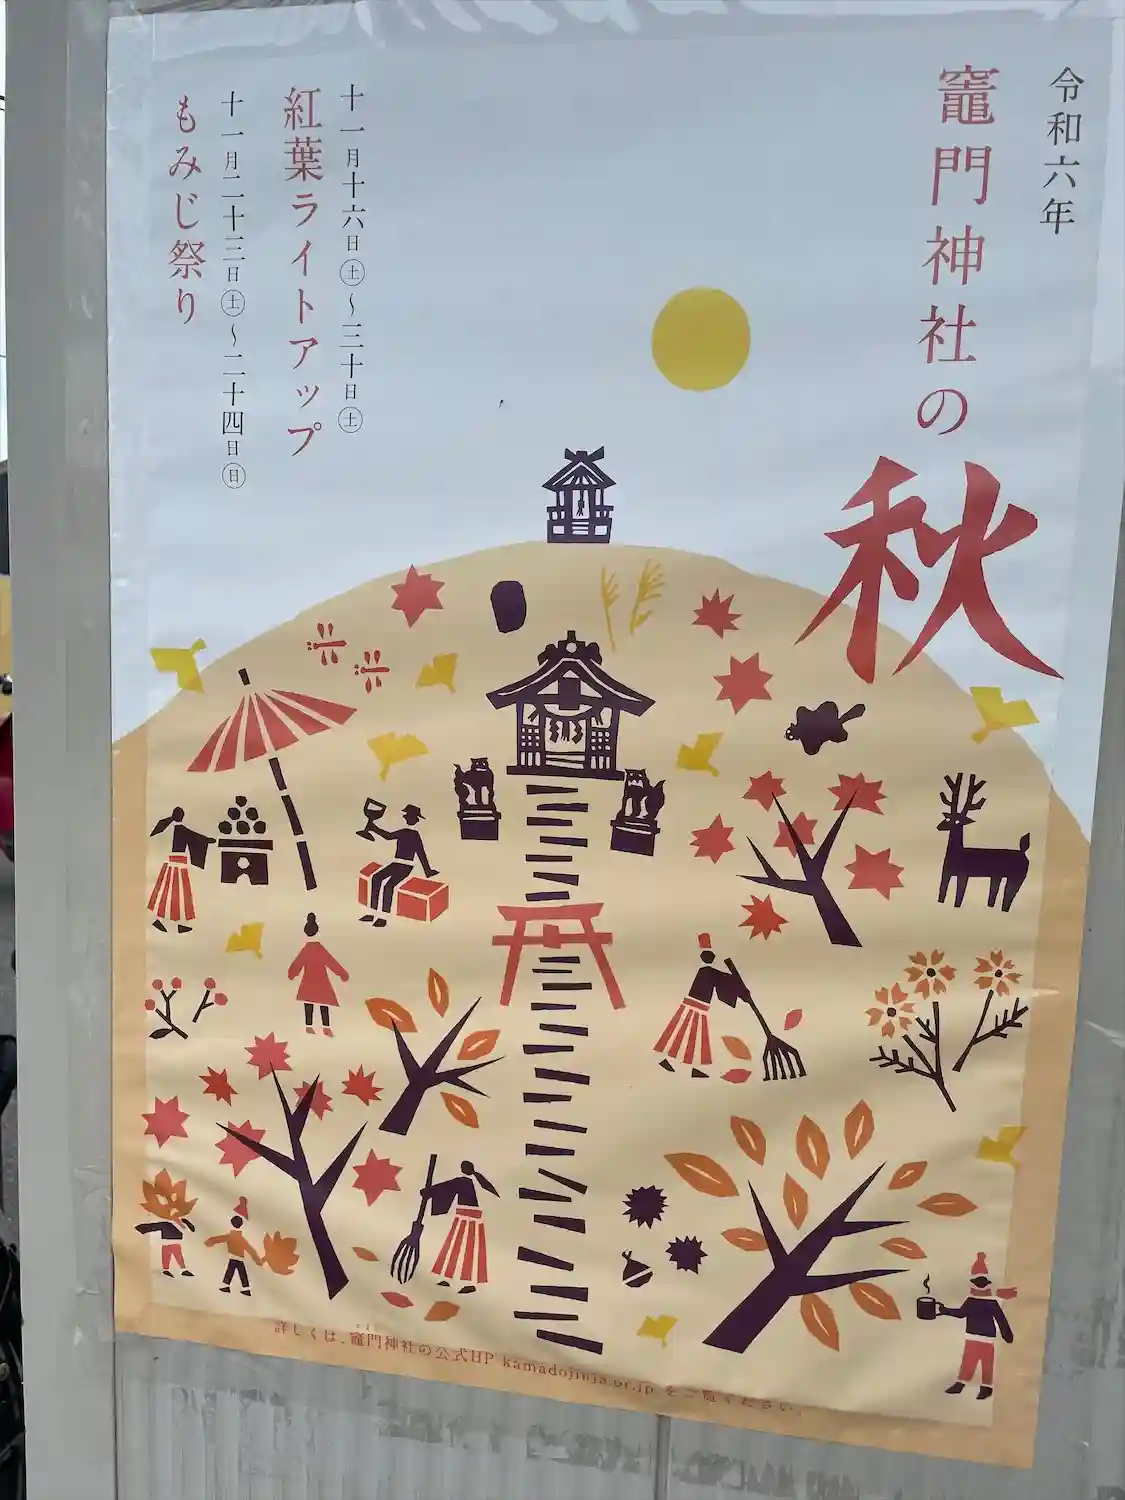 令和六年
竈門神社の
秋
十一月十六日㊏〜三十日㊏
紅葉ライトアップ
十一月二十三日㊏〜二十四日㊐
もみじ祭り
詳しくは、竈門神社の公式HP kamadojinja.or.jp をご覧ください。